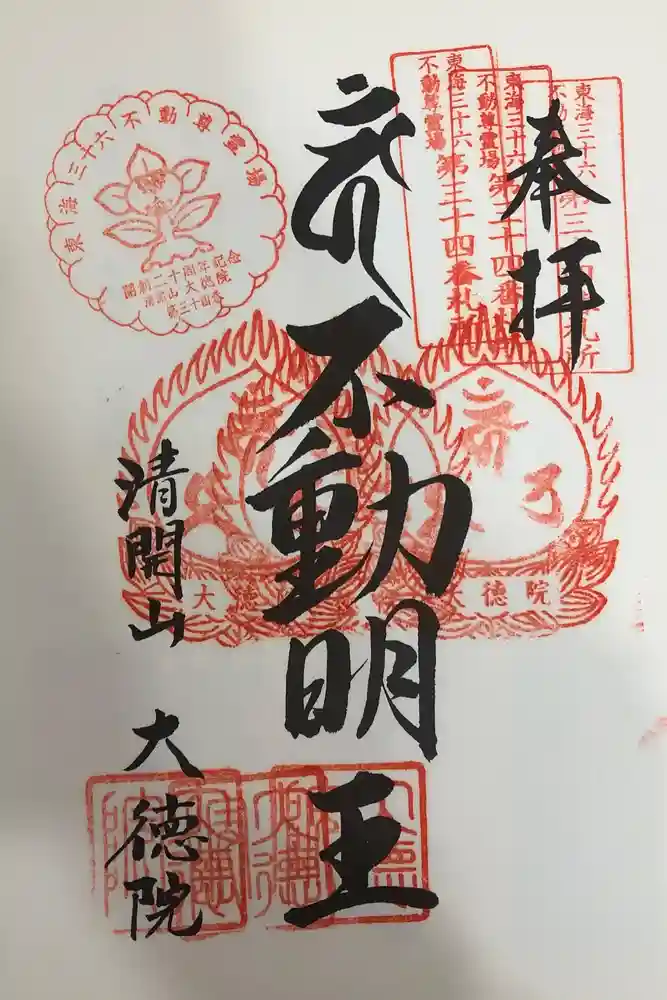 奉拝
東海三十六
不動尊霊場
第三十四番札所
東海三十六
不動尊霊場
第三十四番札
東海三十六
不動
第三十四番札所
不動明王
東海三十六不動尊霊場
開創二十周年記念
清開山大徳院
第三十四番
大徳院
大徳院
清開山
大徳院